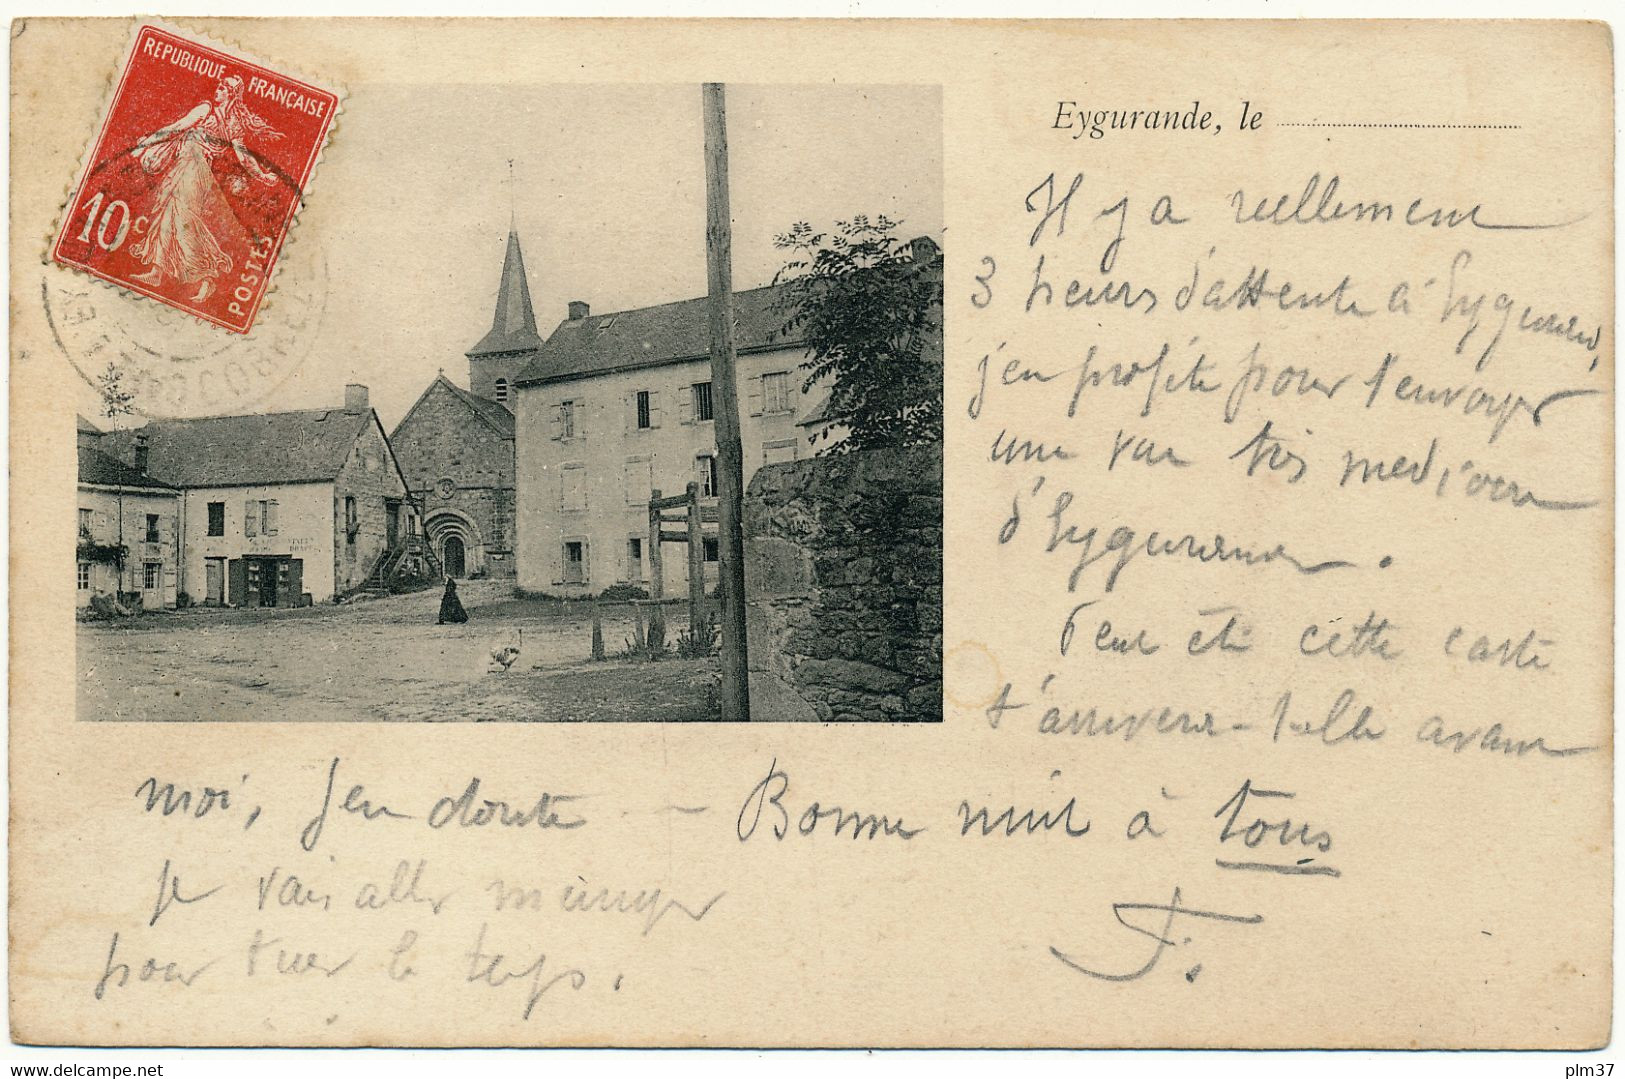 REPUBLIQUE FRANÇAISE
10c
POSTES
Eygurande, le
Il y a réellement
3 heures d'attente à Eygurande,
j'en profite pour t'envoyer
une vue très médiocre
d'Eygurande.
Peut être cette carte
t'arrivera-t-elle avant
moi, j'en doute - Bonne nuit à tous
je vais aller manger
pour tuer le temps.
F.
delcampe.net
plm37